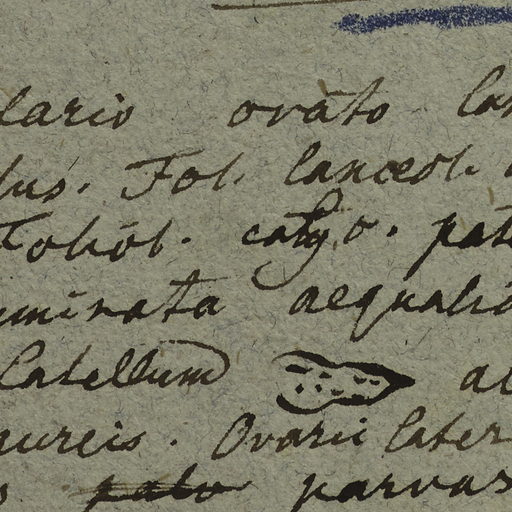 lario ovato lan
lus. Fol. lanceol.
Foliol. calyc. pat
uminata aequalia
Catellum
aureis. Ovarii later
s palo parvas